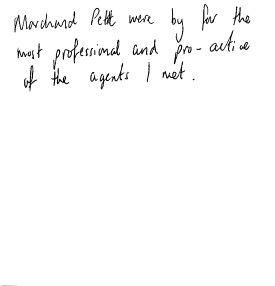 Marchand Petit were by far the
most professional and pro-active
of the agents I met.